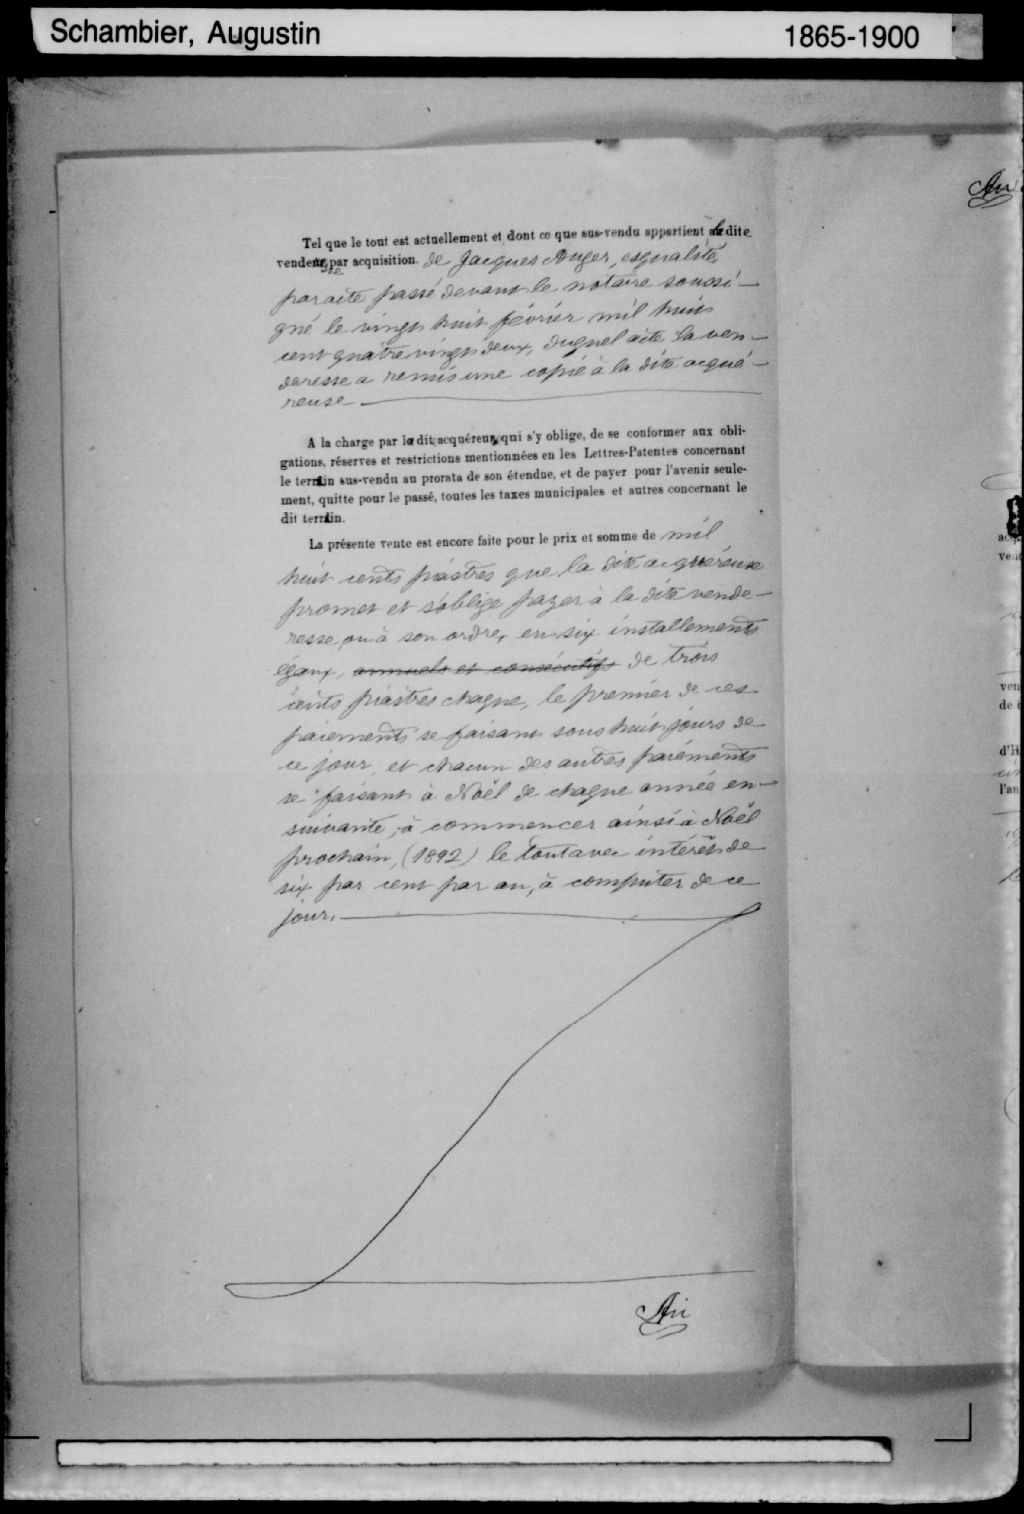 Schambier, Augustin 1865-1900
Tel que le tout est actuellement et dont ce que sus-vendu appartient à la dite
venderesse par acquisition. de Jacques Auger, esqualité,
par acte passé devant le notaire soussi-
gné le vingt huit février mil huit
cent quatre vingt deux, duquel acte la ven-
deresse a remis une copie à la dite acqué-
reuse
A la charge par la dite acquéreur, qui s'y oblige, de se conformer aux obli-
gations, réserves et restrictions mentionnées en les Lettres-Patentes concernant
le terrain sus-vendu au prorata de son étendue, et de payer pour l'avenir seule-
ment, quitte pour le passé, toutes les taxes municipales et autres concernant le
dit terrain.
La présente vente est encore faite pour le prix et somme de mil
huit cents piastres que la dite acquéreuse
promet et s'oblige payer à la dite vende-
resse, ou à son ordre, en six installements
égaux, annuels et consécutifs de trois
cents piastres chaque, le premier de ces
paiements se faisant sous huit jours de
ce jour, et chacun des autres paiements
se faisant à Noël de chaque année en-
suivante, à commencer ainsi à Noël
prochain, (1892) le tout avec intérêt de
six par cent par an, à computer de ce
jour.
ven
de
d'H
l'an